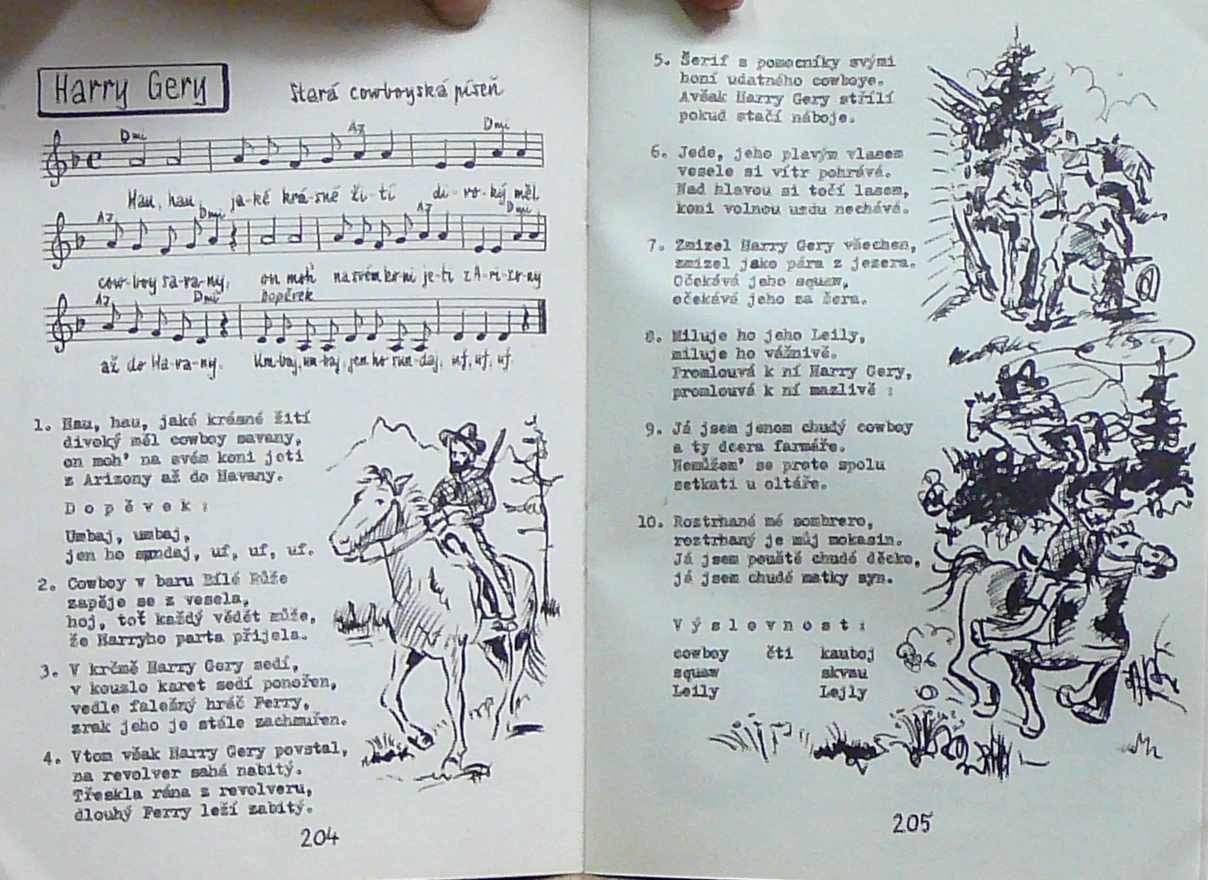 Harry Gery
Stará cowboyská píseň
Dmi A7 Dmi
Hau, hau, ja-ké krá-sné ži-tí di-vo-ký měl
A7 Dmi A7 Dmi
cow-boy sa-va-ny, on moh' na svém ko-ni je-ti z A-ri-zo-ny
A7 Dmi Dopěvek
až do Ha-va-ny. Um-baj, um-baj, jen ho sun-daj, uf, uf, uf.
1. Hau, hau, jaké krásné žití
divoký měl cowboy savany,
on moh' na svém koni jeti
z Arizony až do Havany.
D o p ě v e k :
Umbaj, umbaj,
jen ho sundaj, uf, uf, uf.
2. Cowboy v baru Bílé Růže
zapěje se z vesela,
hoj, toť každý vědět může,
že Harryho parta přijela.
3. V krčmě Harry Gery sedí,
v kouzlo karet sedí ponořen,
vedle falešný hráč Ferry,
zrak jeho je stále zachmuřen.
4. Vtom však Harry Gery povstal,
na revolver sahá nabitý.
Třeskla rána z revolveru,
dlouhý Ferry leží zabitý.
204
5. Šerif s pomocníky svými
honí udatného cowboye.
Avšak Harry Gery střílí
pokud stačí náboje.
6. Jede, jeho plavým vlasem
vesele si vítr pohrává.
Nad hlavou si točí lasem,
koni volnou uzdu nechává.
7. Zmizel Harry Gery všechen,
zmizel jako pára z jezera.
Očekává jeho squaw,
očekává jeho za šera.
8. Miluje ho jeho Leily,
miluje ho vážnivě.
Promlouvá k ní Harry Gery,
promlouvá k ní mazlivě :
9. Já jsem jenom chudý cowboy
a ty dcera farmáře.
Nemůžem' se proto spolu
setkati u oltáře.
10. Roztrhané mé sombrero,
roztrhaný je můj mokasin.
Já jsem pouště chudé děcko,
já jsem chudé matky syn.
V ý s l o v n o s t :
cowboy čti kauboj
squaw skvau
Leily Lejly
205